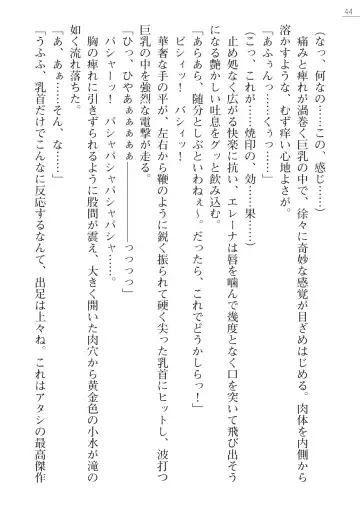 44
(なっ、何なの……この、感じ……)
痛みと痺れが渦巻く巨乳の中で、徐々に奇妙な感覚が目ざめはじめる。肉体を内側から
溶かすような、むず痒い心地よさが。
「あふぅんっ……くぅっ……」
(こっ、これが……焼印の、効……果……)
止め処なく広がる快楽に抗い、エレーナは唇を噛んで幾度となく口を突いて飛び出そう
になる艶かしい吐息をグッと飲み込む。
「あらあら、随分としぶといわねぇ~。だったら、これでどうかしらっ!」
ビシィッ! バシィッ!
華奢な手の平が、左右から鞭のように鋭く振られて硬く尖った乳首にヒットし、波打つ
巨乳の中を強烈な電撃が走る。
「ひっっ、ひやあぁぁぁぁ――――――っっっっ」
バシャーッ! バシャバシャバシャバシャ……。
胸の痺れに引きずられるように股間が震え、大きく開いた肉穴から黄金色の小水が滝の
如く流れ落ちた。
「あ、あぁ……そん, な……」
「うふふ、乳首だけでこんなに反応するなんて、出足は上々ね。これはアタシの最高傑作